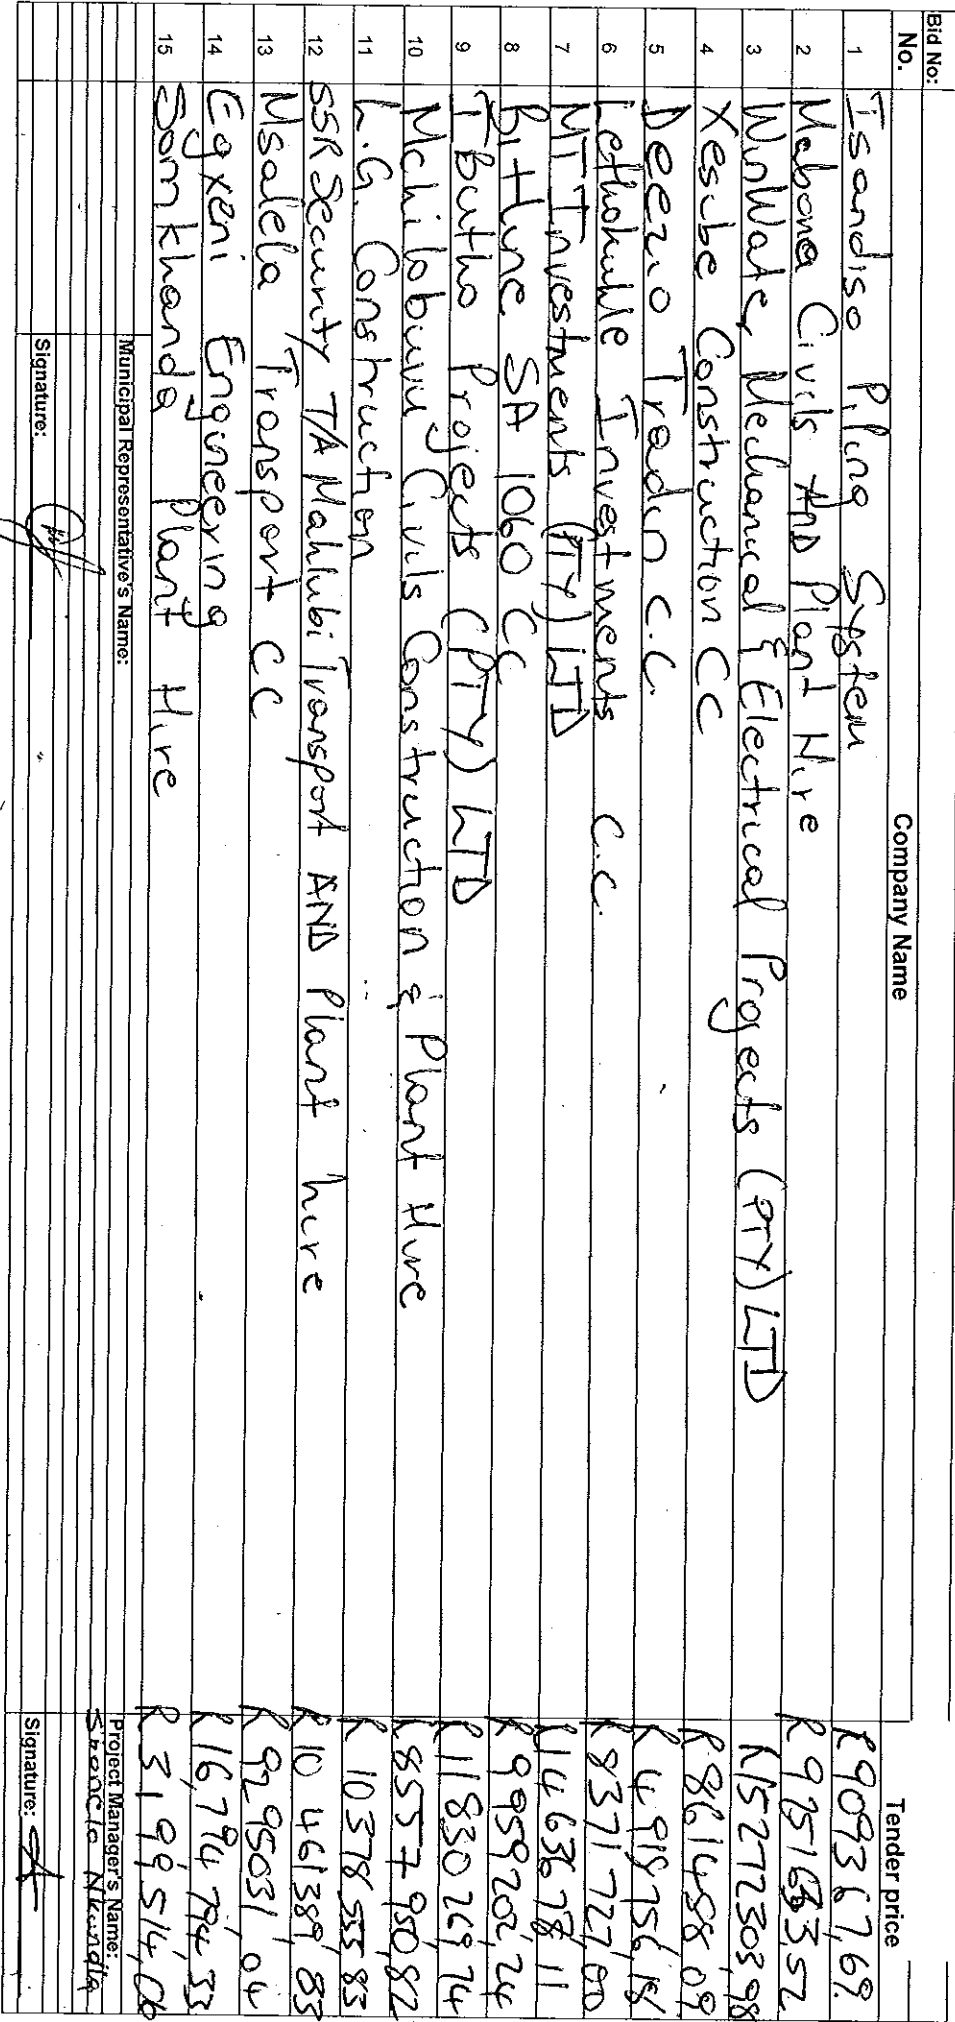 Bid No:
No. Company Name Tender price
1 Isandiso Piping System R909367,69
2 Mabona Civils AND Plant Hire
3 WinWater Mechanical & Electrical Projects (PTY) LTD R15277303,98
4 Xesibe Construction CC R8614588,09
5 Deezio Tradin C.C. R4918756,16
6 Lethokuhle Investments C.C. R8371727,00
7 MTT Investments (PTY) LTD 14636778,11
8 Bithune SA 1060 CC R9959202,24
9 Ibutho Projects (PTY) LTD R11830269,74
10 Mchilobuvu Civils Construction & Plant Hire R8557950,82
11 L.G. Construction R10378555,83
12 SSR Security T/A Mahlubi Transport AND Plant hire R10 461389,83
13 Msalela Transport CC R9295031,04
14 Egxeni Engineering R16,794 794,33
15 Somkhanda Plant Hire
Municipal Representative's Name: Project Manager's Name:
Signature: Signature: